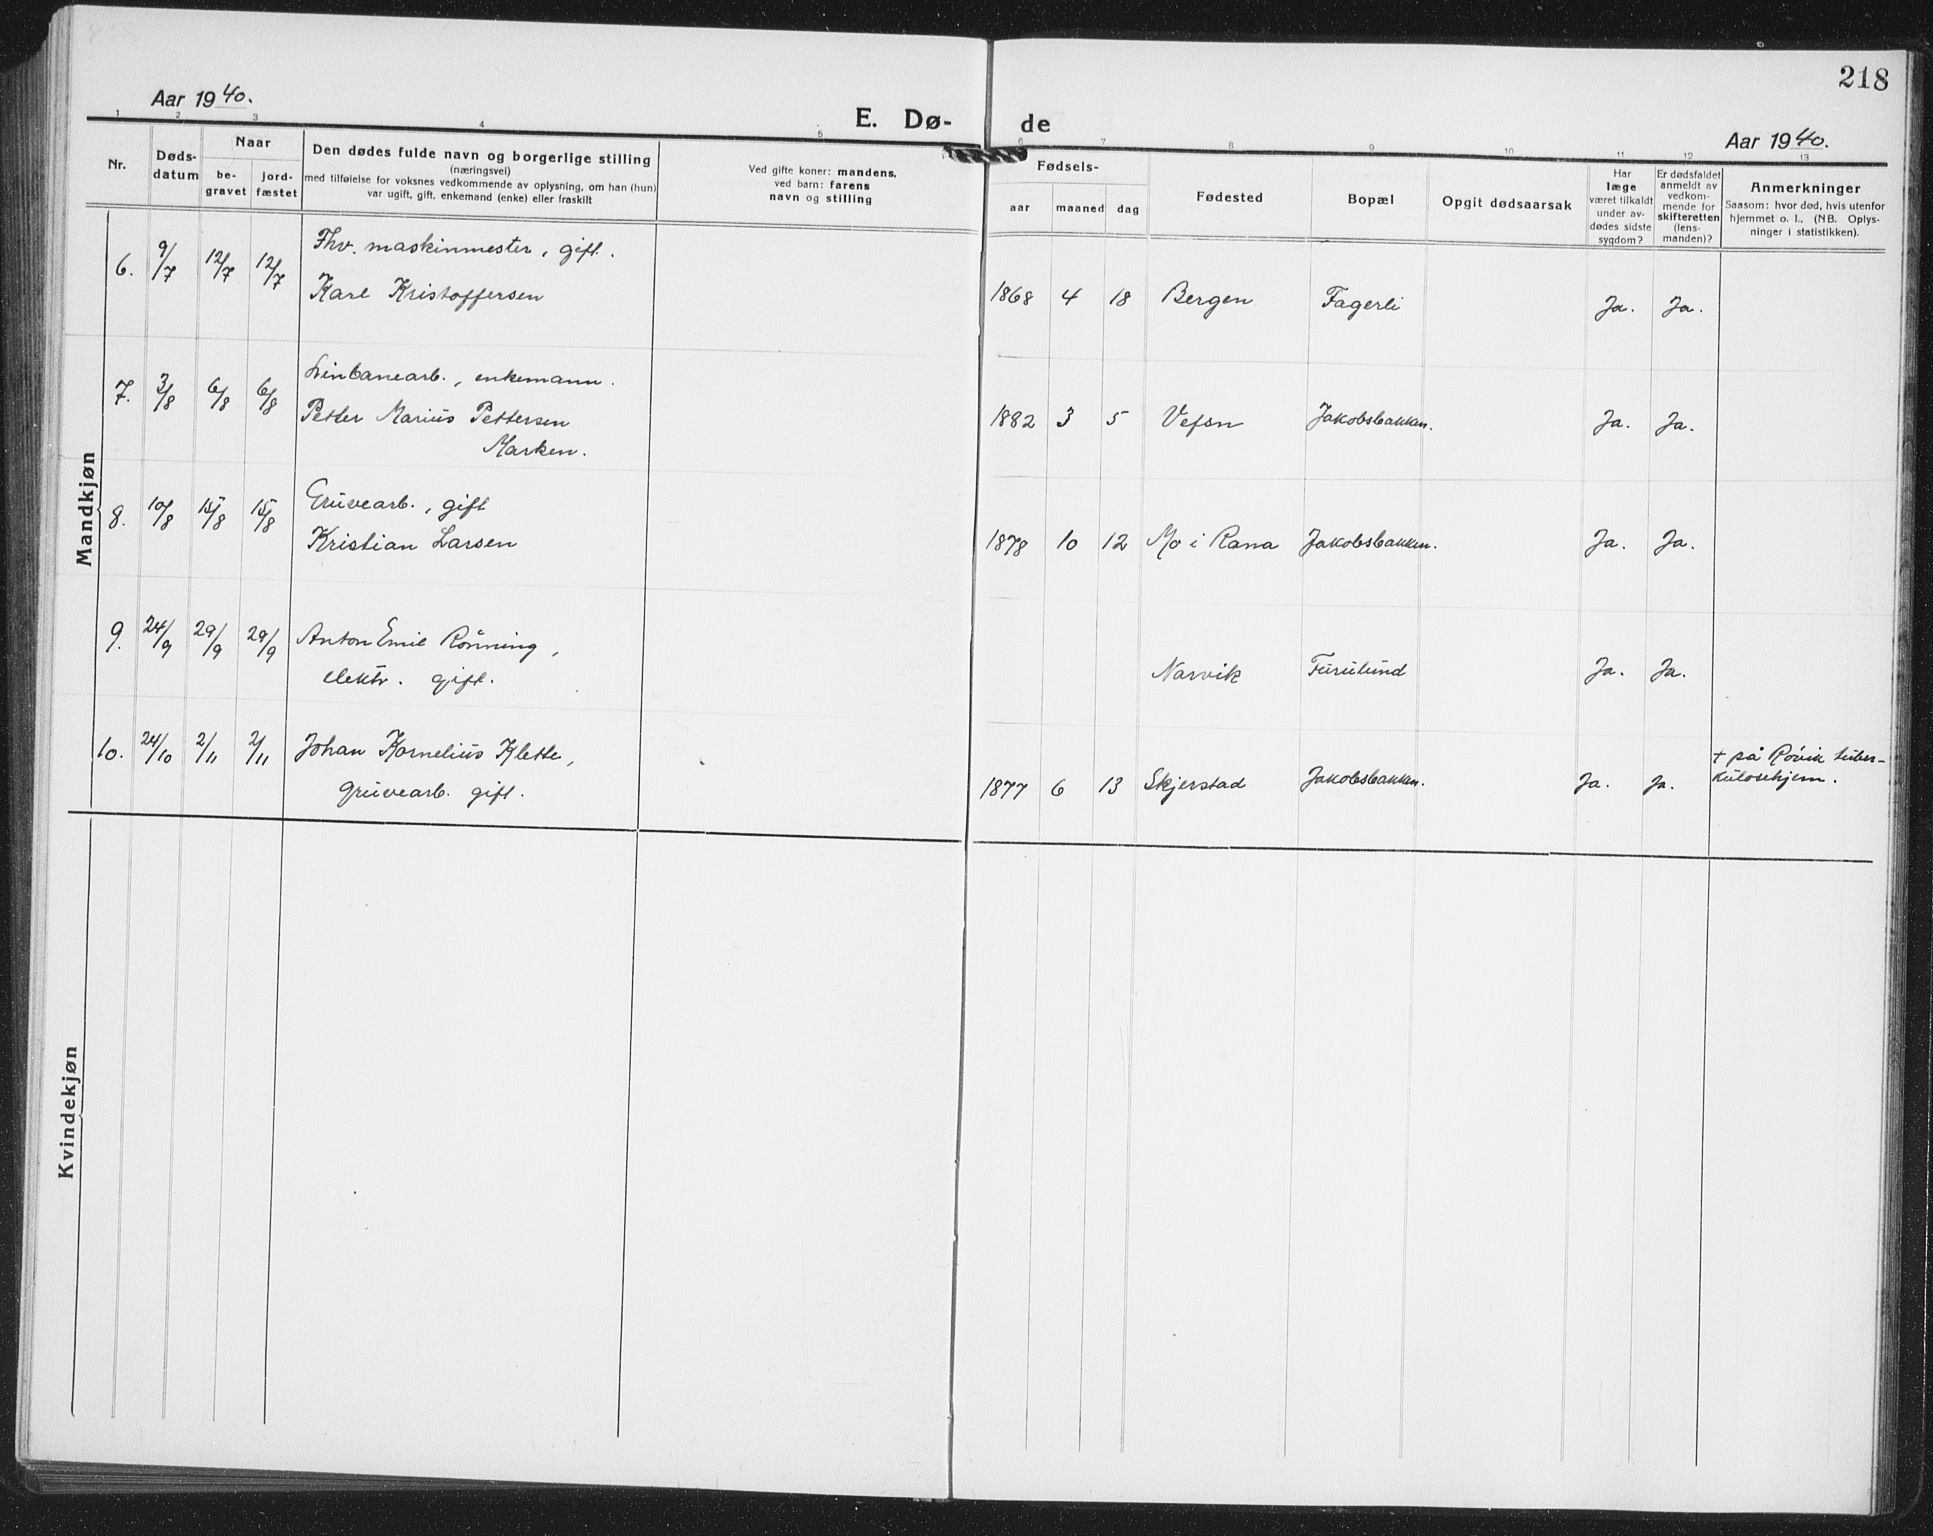 218
Aar 1940.
E. Dø-
de
Aar 1940.
1 2 3 4 5 6 7 8 9 10 11 12 13
Nr.
Døds-
datum
Naar
be-
gravet
jord-
fæstet
Den dødes fulde navn og borgerlige stilling
(næringsvei)
med tilføielse for voksnes vedkommende av oplysning, om han (hun)
var ugift, gift, enkemand (enke) eller fraskilt
Ved gifte koner: mandens,
ved barn: farens
navn og stilling
Fødsels-
aar maaned dag
Fødested
Bopæl
Opgit dødsaarsak
Har
læge
været tilkaldt
under av-
dødes sidste
sygdom?
Er dødsfaldet
anmeldt av
vedkom-
mende for
skifteretten
(lens-
manden)?
Anmerkninger
Saasom: hvor død, hvis utenfor
hjemmet o. l., (NB. Oplys-
ninger i statistikken).
Mandkjøn
6. 9/7 12/7 12/7 Fhv. maskinmester, gift.
Karl Kristoffersen 1868 4 18 Bergen Fagerli Ja. Ja.
7. 3/8 6/8 6/8 Linbanearb., enkemann.
Petter Marius Pettersen 1882 3 5 Vefsn Jakobsbakken. Ja. Ja.
Marken.
8. 10/8 15/8 15/8 Gruvearb., gift
Kristian Larsen 1878 10 12 Mo i Rana Jakobsbakken. Ja. Ja.
9. 24/9 29/9 29/9 Anton Emil Rönning,
elektr. gift. Narvik Furulund Ja. Ja.
10. 24/10 2/11 2/11 Johan Kornelius Klette, † på Røvik tuber-
gruvearb. gift. 1877 6 13 Skjerstad Jakobsbakken. Ja. Ja. kulosehjem.
Kvindekjøn